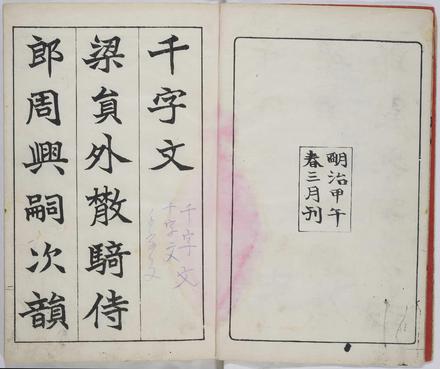 明治甲午
春三月刊
千字文
梁員外散騎侍
郎周興嗣次韻
千字文
千字文